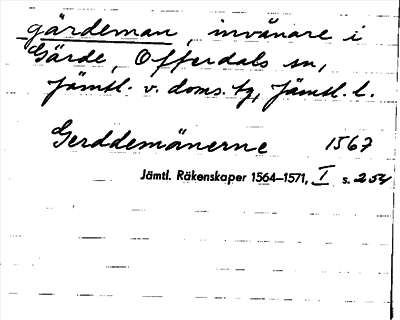 gärdeman, invånare i
Gärde, Offerdals sn,
Jämtl. v. doms. tg, Jämtl. l.
Gerddemänerne 1567
Jämtl. Räkenskaper 1564–1571, I s. 254